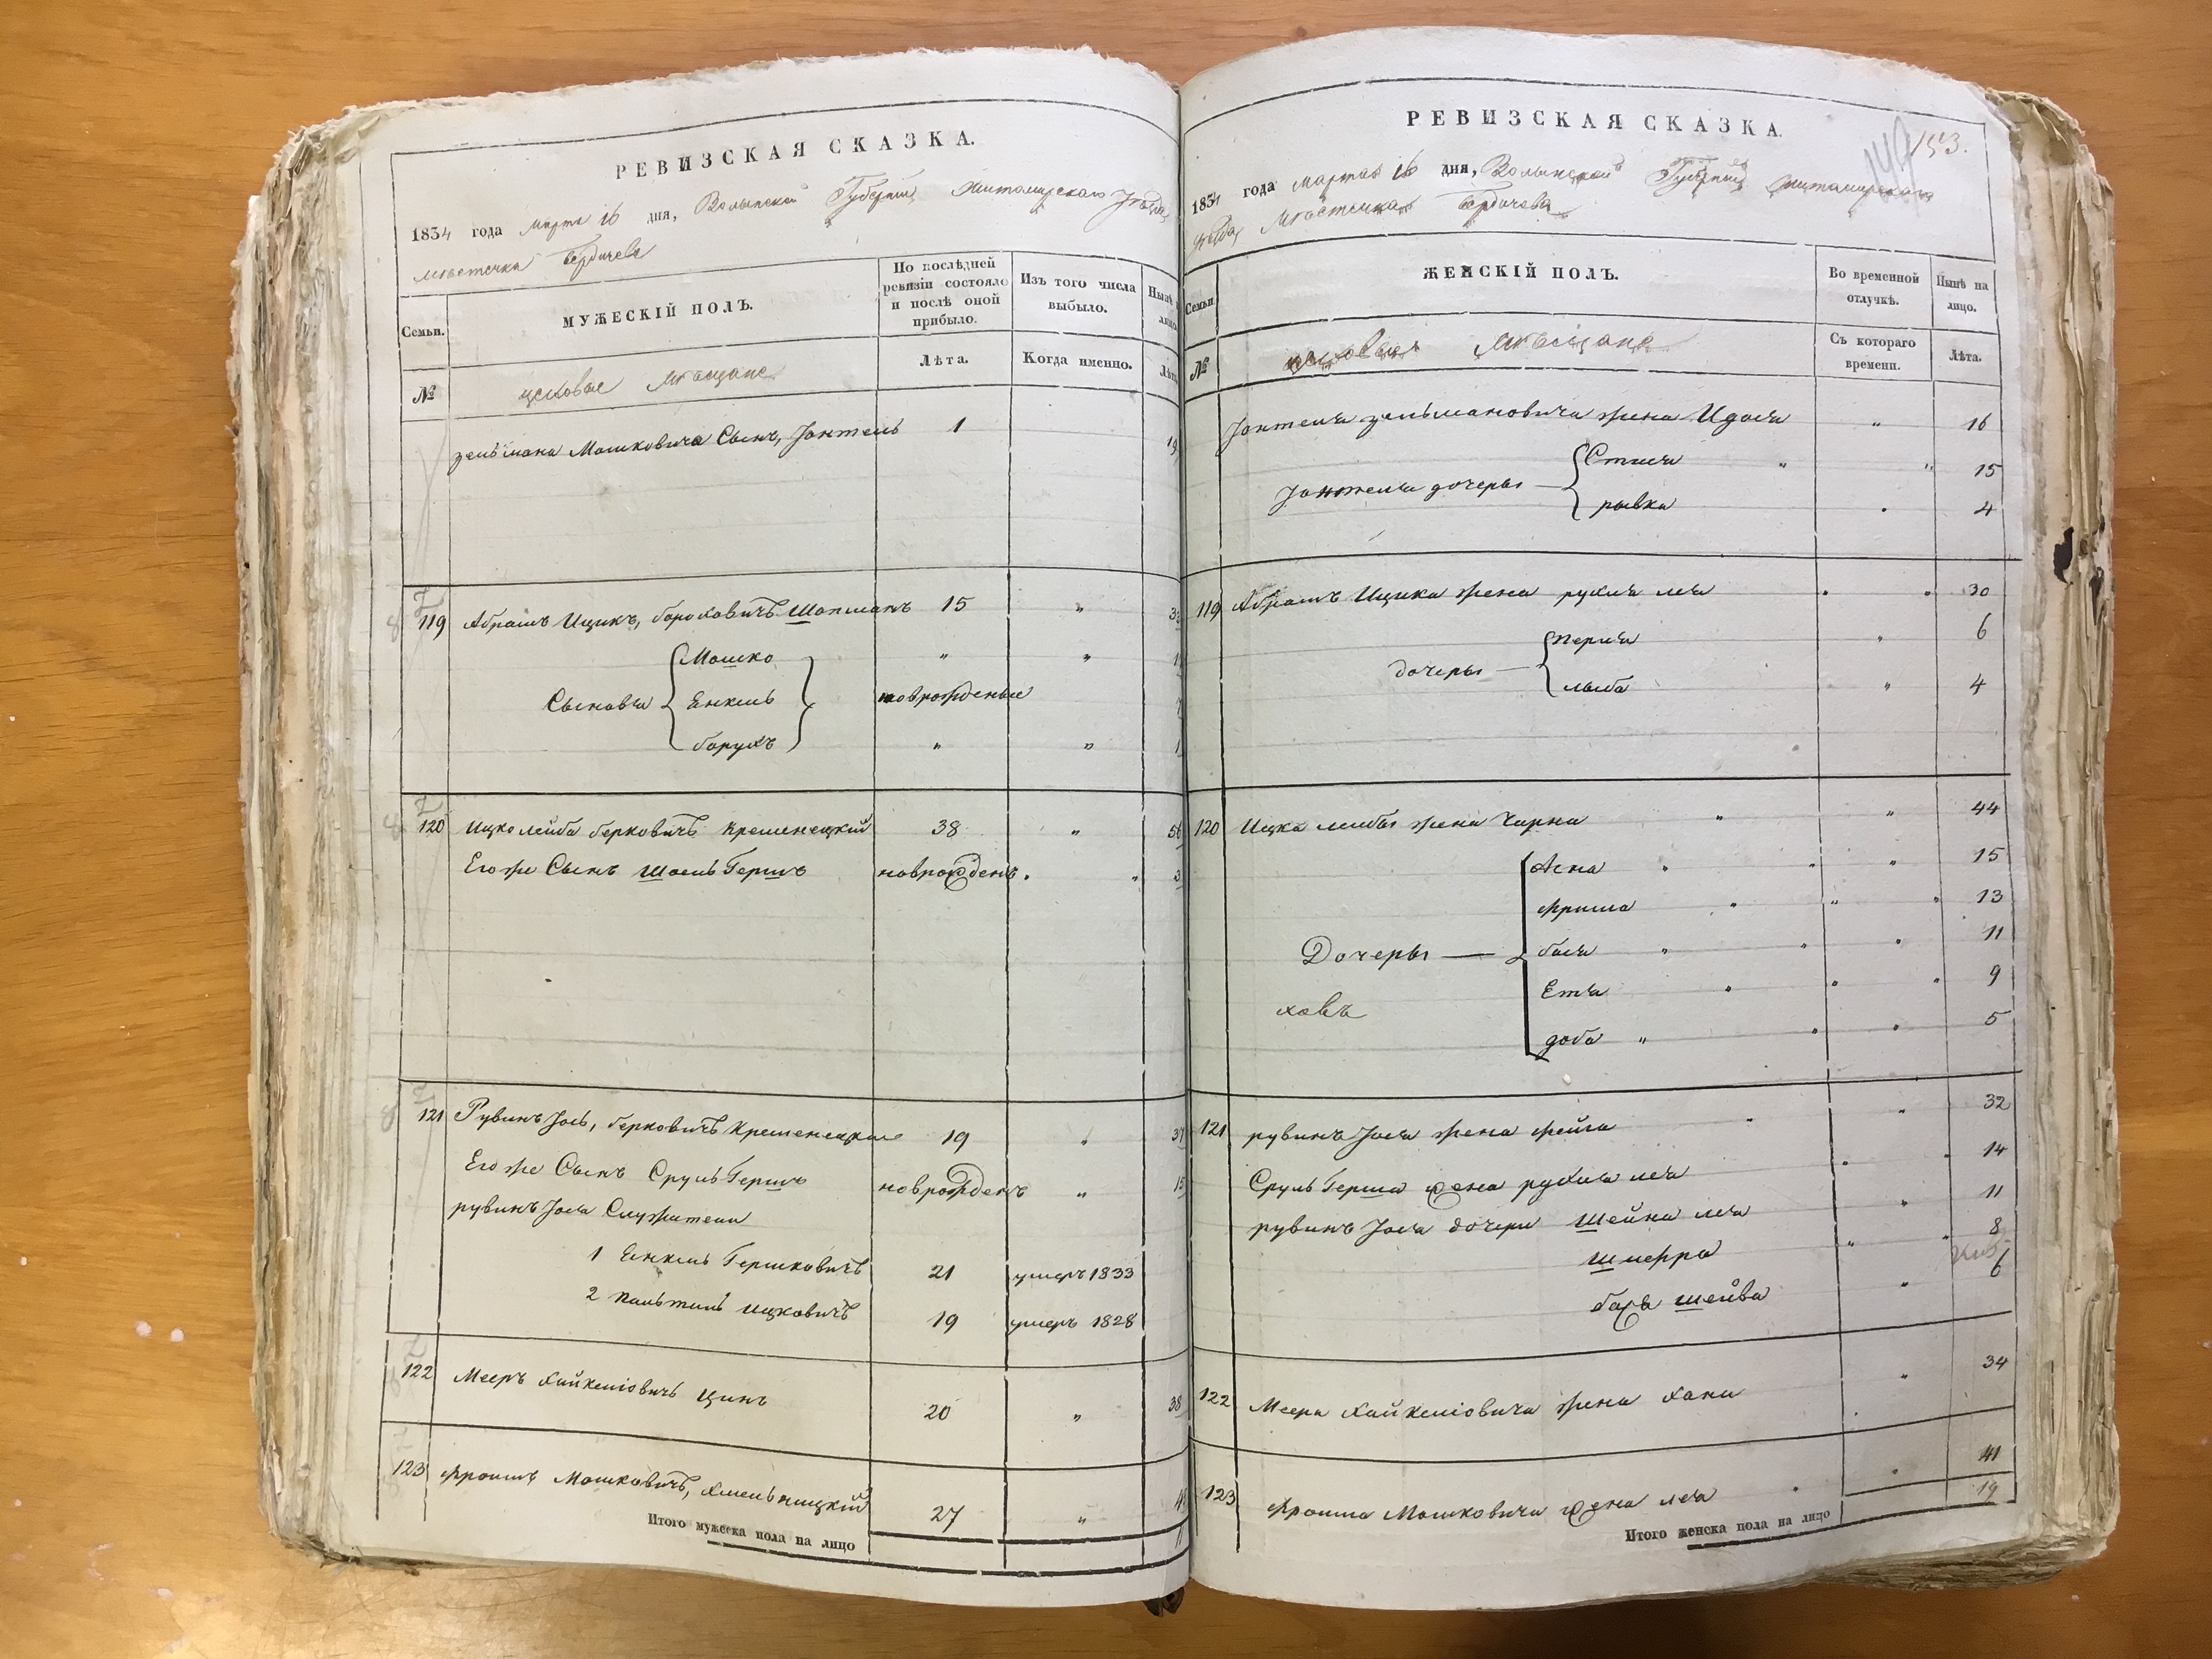 РЕВИЗСКАЯ СКАЗКА.
1834 года марта 16 дня, Волынской Губерніи Житомирскаго Уезда
мѣстечка Бердичева
Семьи.
МУЖЕСКІЙ ПОЛЪ.
По послѣдней ревизіи состояло и послѣ оной прибыло.
Изъ того числа выбыло.
№
цеховые мѣщане
Лѣта.
Когда именно.
зельмана Мошковича Сынъ, Іонтель 1 19
119 Абрамъ Ицикъ, бороховичъ Шапманъ 15 „
Сыновья
Мошко „ „
Енкель новрожденые
борухъ „ „
120 Ицко лейба берковичъ Кременецкій 38 „
Его же Сынъ Шоель Гершъ новрожденъ „
121 Рувинъ Іось, берковичъ Кременецкій 19 „
Его же Сынъ Сруль Гершъ новрожденъ „ 15
рувинъ Іося Служители
1 Енкель Гершковичъ 21 умеръ 1833
2 пальтиель ицковичъ 19 умеръ 1828
122 Мееръ Хайкеліовичъ Цинъ 20 „ 38
123 Фроимъ Мошковичъ, Хмельницкій 27 „
Итого мужеска пола на лицо
РЕВИЗСКАЯ СКАЗКА.
153.
1834 года марта 16 дня, Волынской Губерніи Житомирскаго
уезда Мѣстечка Бердичева
Семьи.
ЖЕНСКІЙ ПОЛЪ.
Во временной отлучкѣ.
Нынѣ на лицо.
№
цеховыя мѣщане
Съ котораго времени.
Лѣта.
Іонтеля зельмановича жена Идася „ 16
Іонтеля дочеры
Стися „ „ 15
рывка 4
119 Абрамъ Ицика жена рухля лея „ „ 30
дочеры
перля „ 6
лыба „ 4
120 Ицка лейбы жена Чарна „ „ 44
Дочеры
Асна „ „ „ 15
Фрима „ „ „ 13
бася „ „ „ 11
Етя „ „ „ 9
доба „ „ „ 5
ховъ
121 рувинъ Іося жена фейга „ „ 32
Сруль Герша жена рухля лея „ „ 14
рувинъ Іося дочери Шейна лея „ 11
Шлифра „ „ 8
бася шейва „ 6
122 Меера Хайкеліовича жена Хана „ 34
123 Фроима Мошковича жена лея „ „ 41
Итого женска пола на лицо 19